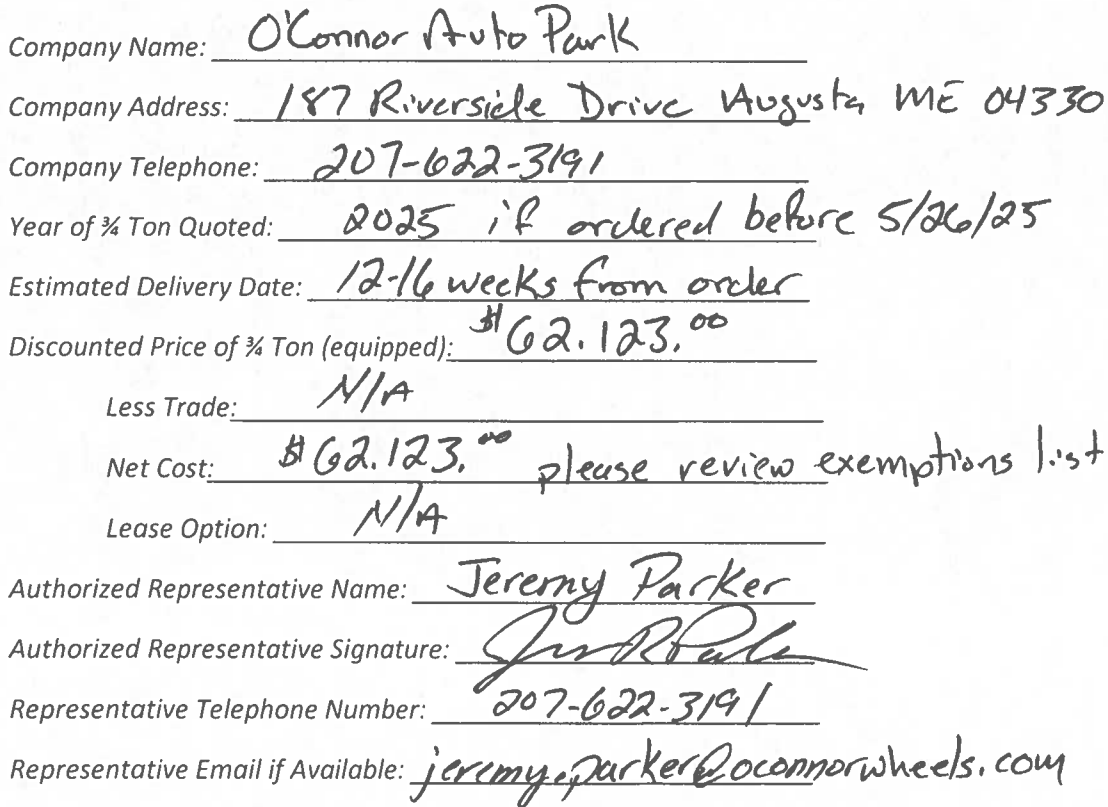 Company Name: O'Connor Auto Park
Company Address: 187 Riverside Drive Augusta, ME 04330
Company Telephone: 207-622-3191
Year of ¾ Ton Quoted: 2025 if ordered before 5/26/25
Estimated Delivery Date: 12-16 weeks from order
Discounted Price of ¾ Ton (equipped): $62.123.00
Less Trade: N/A
Net Cost: $62.123.00 please review exemptions list
Lease Option: N/A
Authorized Representative Name: Jeremy Parker
Authorized Representative Signature:
Representative Telephone Number: 207-622-3191
Representative Email if Available: jeremy.parker@oconnorwheels.com